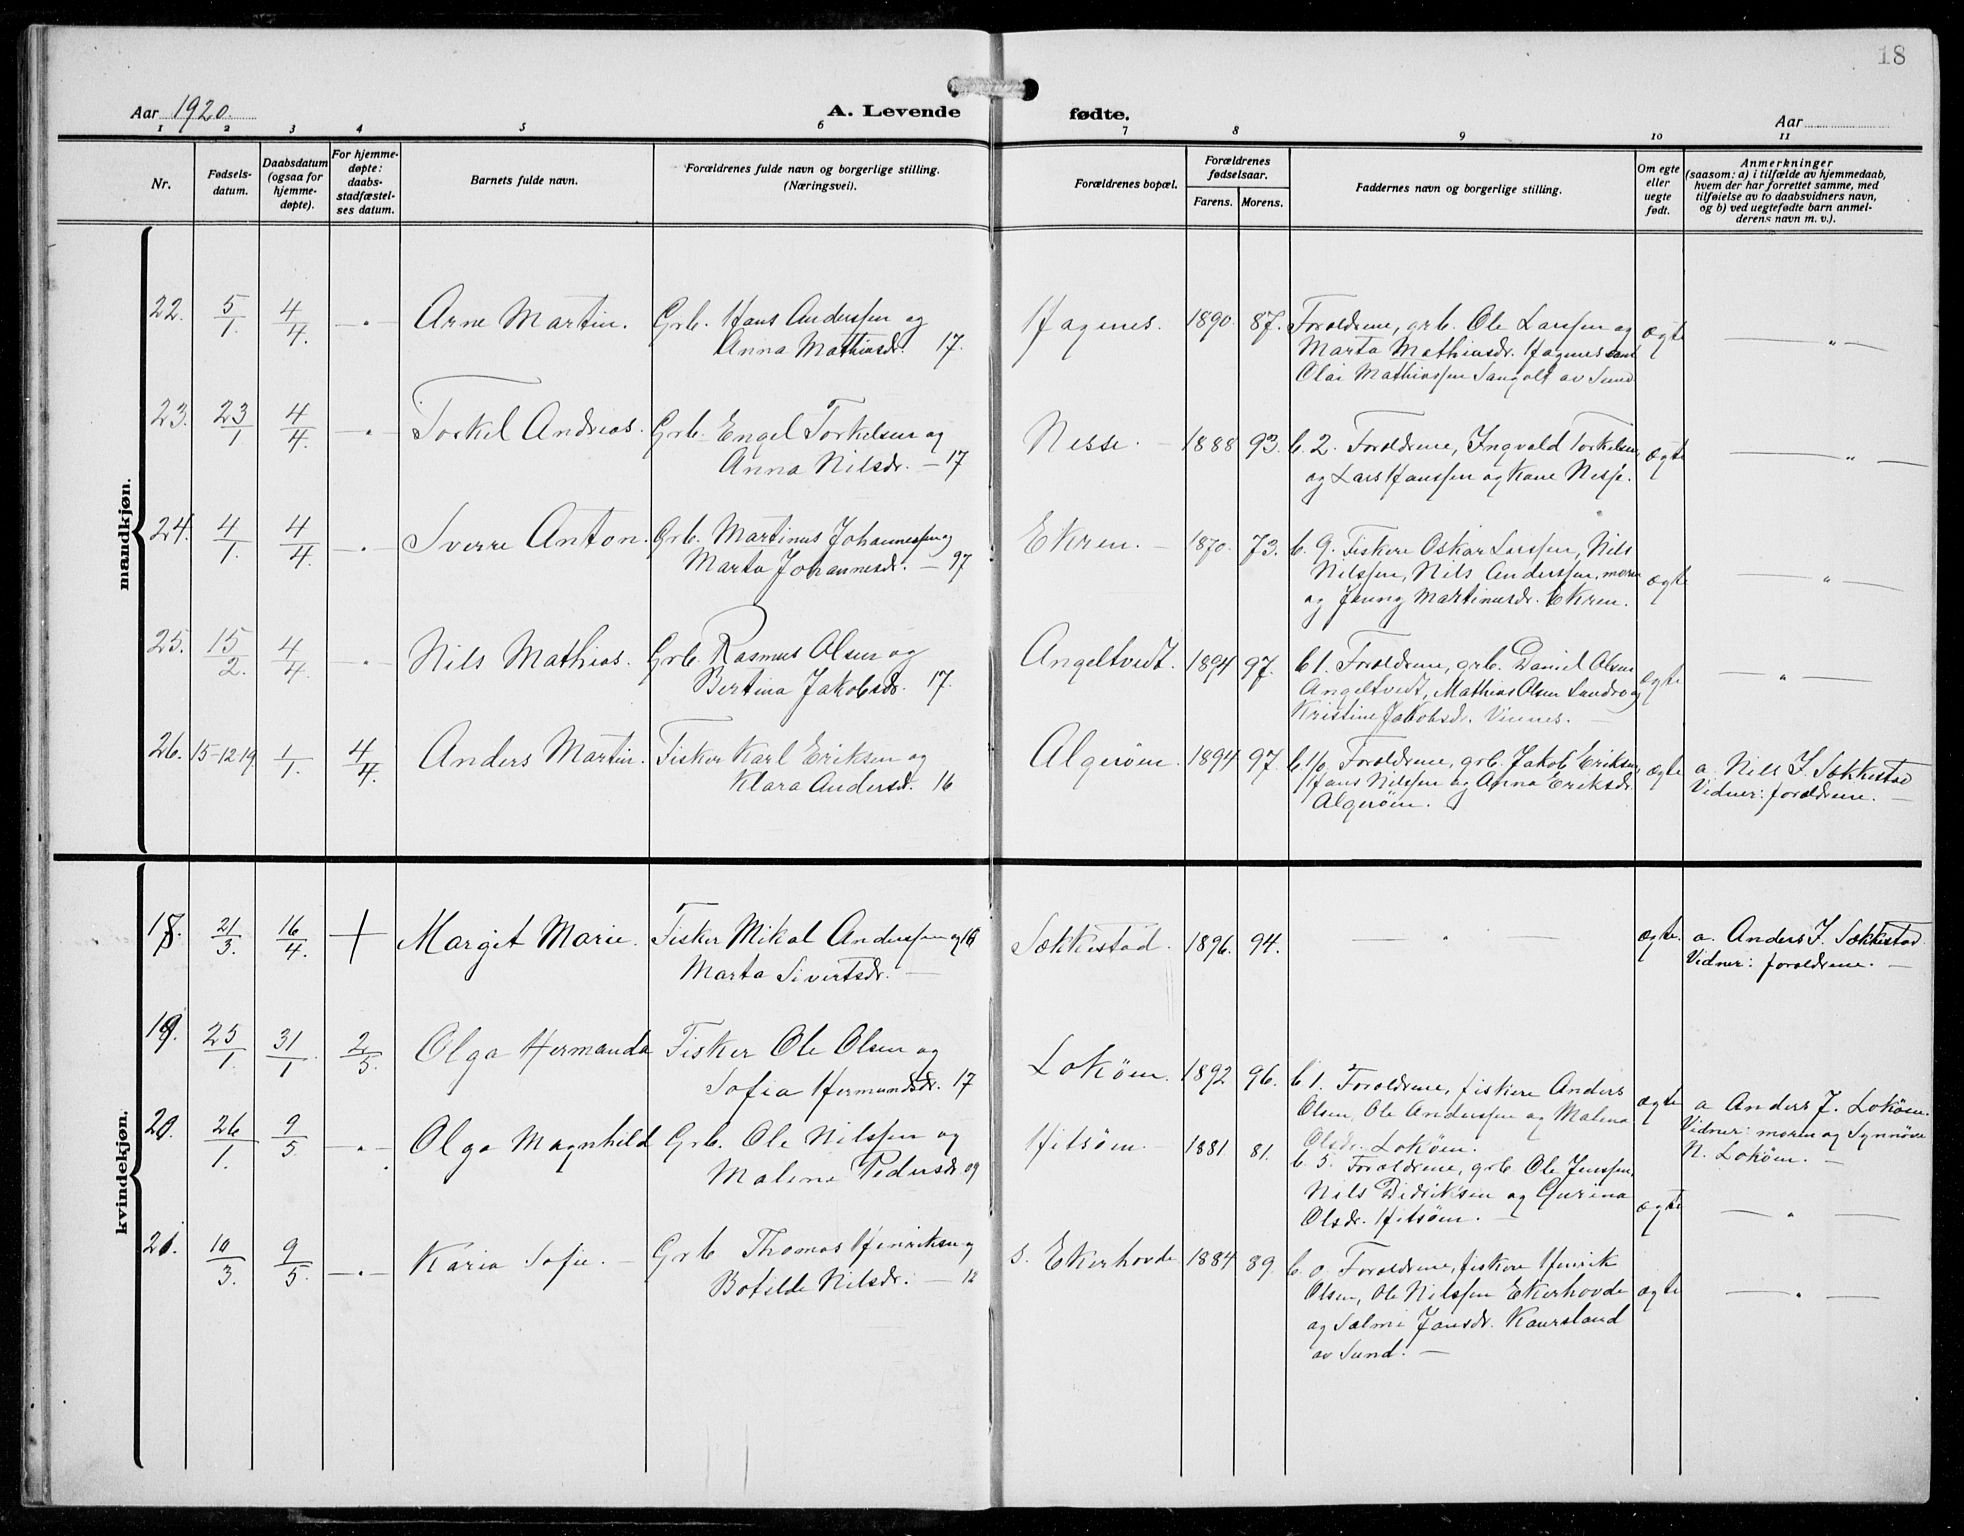 18
Aar 1920.
A. Levende fødte.
Aar
1 2 3 4 5 6 7 8 9 10 11
Nr.
Fødsels-
datum.
Daabsdatum
(ogsaa for
hjemme-
døpte).
For hjemme-
døpte:
daabs-
stadfæstel-
ses datum.
Barnets fulde navn.
Forældrenes fulde navn og borgerlige stilling.
(Næringsvei).
Forældrenes bopæl.
Forældrenes
fødselsaar.
Farens. Morens.
Faddernes navn og borgerlige stilling.
Om egte
eller
uegte
født.
Anmerkninger
(saasom: a) i tilfælde av hjemmedaab,
hvem der har forrettet samme, med
tilføielse av to daabsvidners navn,
og b) ved uegtefødte barn anmel-
derens navn m. v.).
mandkjøn.
22. 5/1. 4/4. — " — Arne Martin. Grb. Hans Anderssen og
Anna Mathiasdr. 17.
Hagenes. 1890. 87. Forældrene, grb. Ole Larssen og
Marta Mathiasdr. Hagenes samt
Olai Mathiassen Sangolt av Sund
ægte — " —
23. 23/1 4/4. — " — Torkel Andreas. Grb. Engel Torkelsen og
Anna Nilsdr. — 17
Nesse. — 1888 93. b. 2. Forældrene, Ingvald Torkelsen
og Lars Hanssen og Kone Nesje.
ægte — " —
24. 4/1. 4/4. — " — Sverre Anton. Grb. Martinus Johannessen og
Marta Johannesdr. — 97
Ekren. — 1870. 73. b. 9. Fiskere Oskar Larssen, Nils
Nilssen, Nils Anderssen, moren
og Jenny Martinusdr. Ekren.
ægte — " —
25. 15/2. 4/4. — " — Nils Mathias. Grb. Rasmus Olsen og
Bertina Jakobsdr. 17.
Angeltvedt. 1894 97. b 1. Forældrene, grb. Daniel Olsen
Angeltvedt, Mathias Olsen Lundø og
Kristine Jakobsdr. Vinnes. —
ægte — " —
26. 15-12 19 1/1. 4/4. Anders Martin. Fisker Karl Eriksen og
Klara Andersdr. 16
Algerøen. 1894 97. b 1/0 Forældrene, grb. Jakob Eriksen
Hans Nilssen og Anna Eriksdr.
Algerøen.
ægte a. Nils J. Sekkestad
Vidner: forældrene. —
kvindekjøn.
18. 21/3. 16/4. + Margit Marie. Fisker Mikal Anderssen og 16
Marta Sivertsdr. —
Sekkestad. 1896. 94. — " —
ægte. a. Anders J. Sekkestad.
Vidner: forældrene. —
19. 25/1. 31/1 2/5. Olga Hermanda Fisker Ole Olsen og
Sofia Hermundsdr. 17
Lokøen. 1892 96. b 1. Forældrene, fiskere Anders
Olsen, Ole Anderssen og Malena
Olsdr. Lokøen.
ægte a Anders J. Lokøen.
Vidner: moren og Synnøve
N. Lokøen. —
20. 26/1. 9/5 — " — Olga Magnhild Grb. Ole Nilssen og
Malene Pedersdr 09
Hitsøen. 1881. 81. b. 5. Forældrene, grb. Ole Jenssen,
Nils Didriksen og Gurina
Olsdr. Hitsøen. —
ægte — " —
21. 10/3. 9/5. — " — Karia Sofie. — Grb Thomas Henriksen og
Botilde Nilsdr. — 12
S. Ekerhovde 1884 89. b. 0. Forældrene, fiskere Henrik
Olsen, Ole Nilssen Ekerhovde
og Salmi Jansdr. Kausland
av Sund. —
ægte — " —